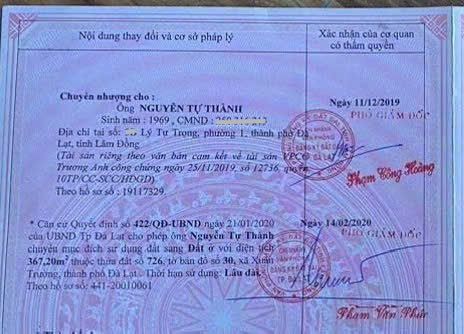 Nội dung thay đổi và cơ sở pháp lý
Xác nhận của cơ quan
có thẩm quyền
Chuyển nhượng cho :
Ông NGUYỄN TỰ THÀNH
Sinh năm : 1969 , CMND :
Địa chỉ tại số: Lý Tự Trọng, phường 1, thành phố Đà
Lạt, tỉnh Lâm Đồng
(Tài sản riêng theo văn bản cam kết về tài sản VPCC
Trương Anh công chứng ngày 25/11/2019, số 12736, quyển
10TP/CC-SCC/HĐGD).
Theo hồ sơ số : 19117329.
Ngày 11/12/2019
PHÓ GIÁM ĐỐC
Phạm Công Hoàng
* Căn cứ Quyết định số 422/QĐ-UBND ngày 21/01/2020
của UBND Tp Đà Lạt cho phép ông Nguyễn Tự Thành
chuyển mục đích sử dụng đất sang Đất ở với diện tích
367,20m² thuộc thửa đất số 726, tờ bản đồ số 30, xã Xuân
Trường, thành phố Đà Lạt. Thời hạn sử dụng: Lâu dài.
Theo hồ sơ số: 441-20010061
Ngày 14/02/2020
PHÓ GIÁM ĐỐC
Phạm Văn Phúc